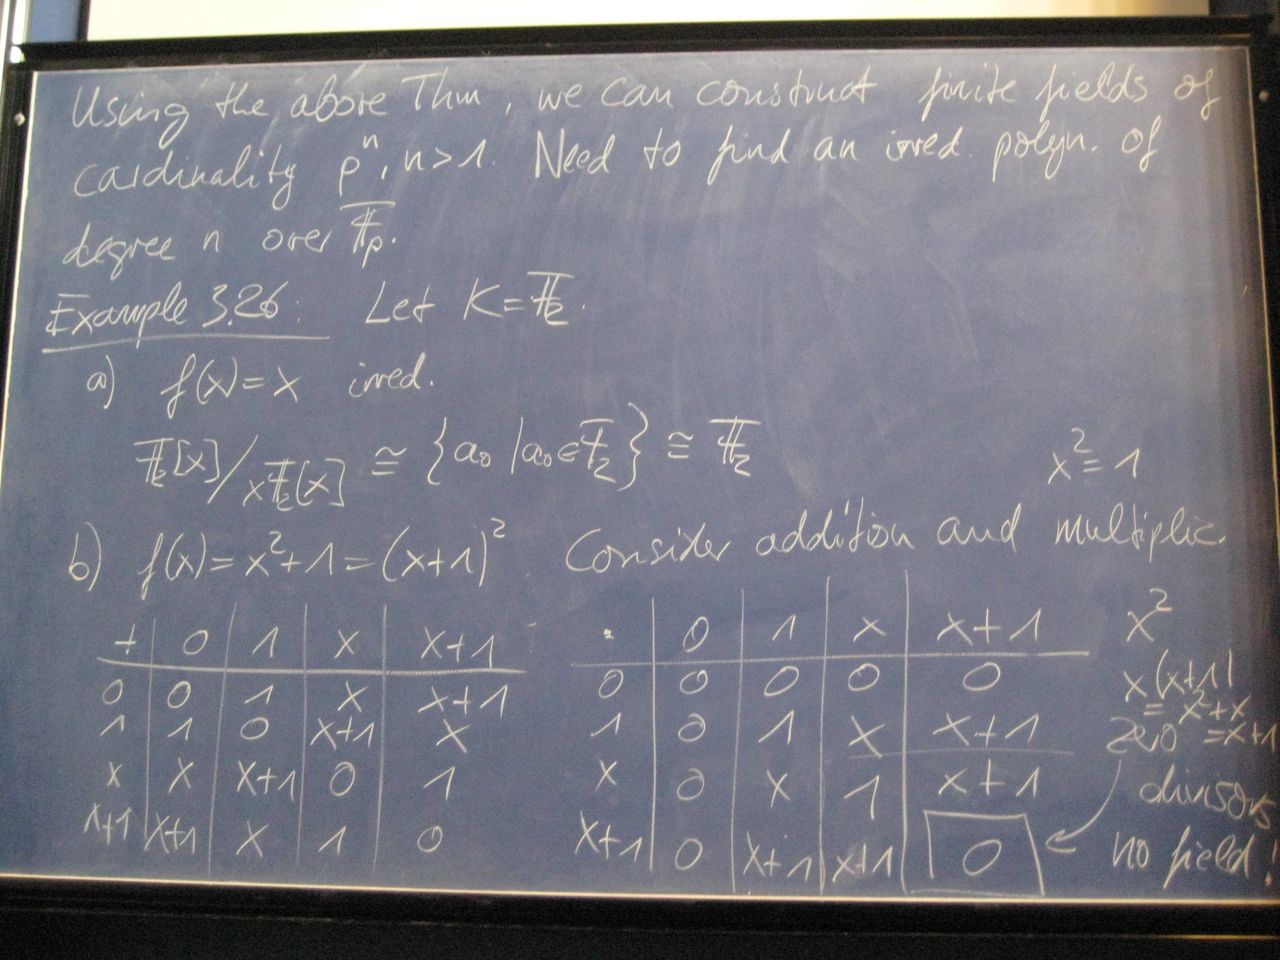 Using the above Thm, we can construct finite fields of
cardinality pⁿ, n>1. Need to find an irred. polyn. of
degree n over 𝔽ₚ.
Example 3.26: Let K = 𝔽₂.
a) f(x) = x irred.
𝔽₂[x]/x𝔽₂[x] ≅ {a₀ | a₀ ∈ 𝔽₂} ≅ 𝔽₂
x² = 1
b) f(x) = x²+1 = (x+1)² Consider addition and multiplic.
+ 0 1 x x+1
0 0 1 x x+1
1 1 0 x+1 x
x x x+1 0 1
x+1 x+1 x 1 0
· 0 1 x x+1
0 0 0 0 0
1 0 1 x x+1
x 0 x 1 x+1
x+1 0 x+1 x+1 0
x²
x(x+1)
= x²+x
zero = x+1
divisors
no field!